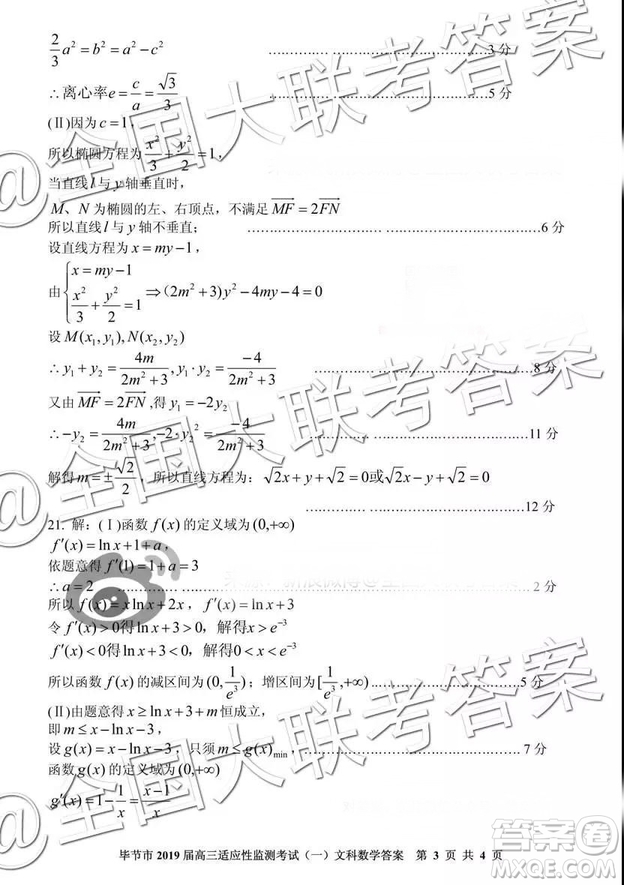 2/3 a² = b² = a² − c² ………………………3 分
∴离心率 e = c/a = √3/3 ………………………5 分
(Ⅱ)因为 c = 1，
所以椭圆方程为 x²/3 + y²/2 = 1，
当直线 l 与 y 轴垂直时，
M、N 为椭圆的左、右顶点，不满足 MF = 2FN
所以直线 l 与 y 轴不垂直； ………………………6 分
设直线方程为 x = my − 1，
由 { x = my − 1, x²/3 + y²/2 = 1 ⇒ (2m² + 3)y² − 4my − 4 = 0
设 M(x₁, y₁), N(x₂, y₂)
∴ y₁ + y₂ = 4m/(2m² + 3), y₁ · y₂ = −4/(2m² + 3) ………………………8 分
又由 MF = 2FN ,得 y₁ = −2y₂
∴ −y₂ = 4m/(2m² + 3), −2 · y₂² = −4/(2m² + 3) ………………………11 分
解得 m = ± √2/2，所以直线方程为：√2x + y + √2 = 0 或 √2x − y + √2 = 0
………………………12 分
21. 解：(Ⅰ)函数 f(x) 的定义域为 (0,+∞)
f′(x) = ln x + 1 + a，
依题意得 f′(1) = 1 + a = 3
∴ a = 2 ………………………2 分
所以 f(x) = x ln x + 2x，f′(x) = ln x + 3
令 f′(x) > 0 得 ln x + 3 > 0，解得 x > e⁻³
f′(x) < 0 得 ln x + 3 < 0，解得 0 < x < e⁻³
所以函数 f(x) 的减区间为 (0, 1/e³)；增区间为 [1/e³, +∞) ………………………5 分
(Ⅱ)由题意得 x ≥ ln x + 3 + m 恒成立，
即 m ≤ x − ln x − 3，
设 g(x) = x − ln x − 3，只须 m ≤ g(x)min， ………………………7 分
函数 g(x) 的定义域为 (0,+∞)
g′(x) = 1 − 1/x = (x − 1)/x
毕节市 2019 届高三适应性监测考试（一）文科数学答案 第 3 页 共 4 页
@全国大联考答案
@全国大联考答案
答案圈
MXQE.COM